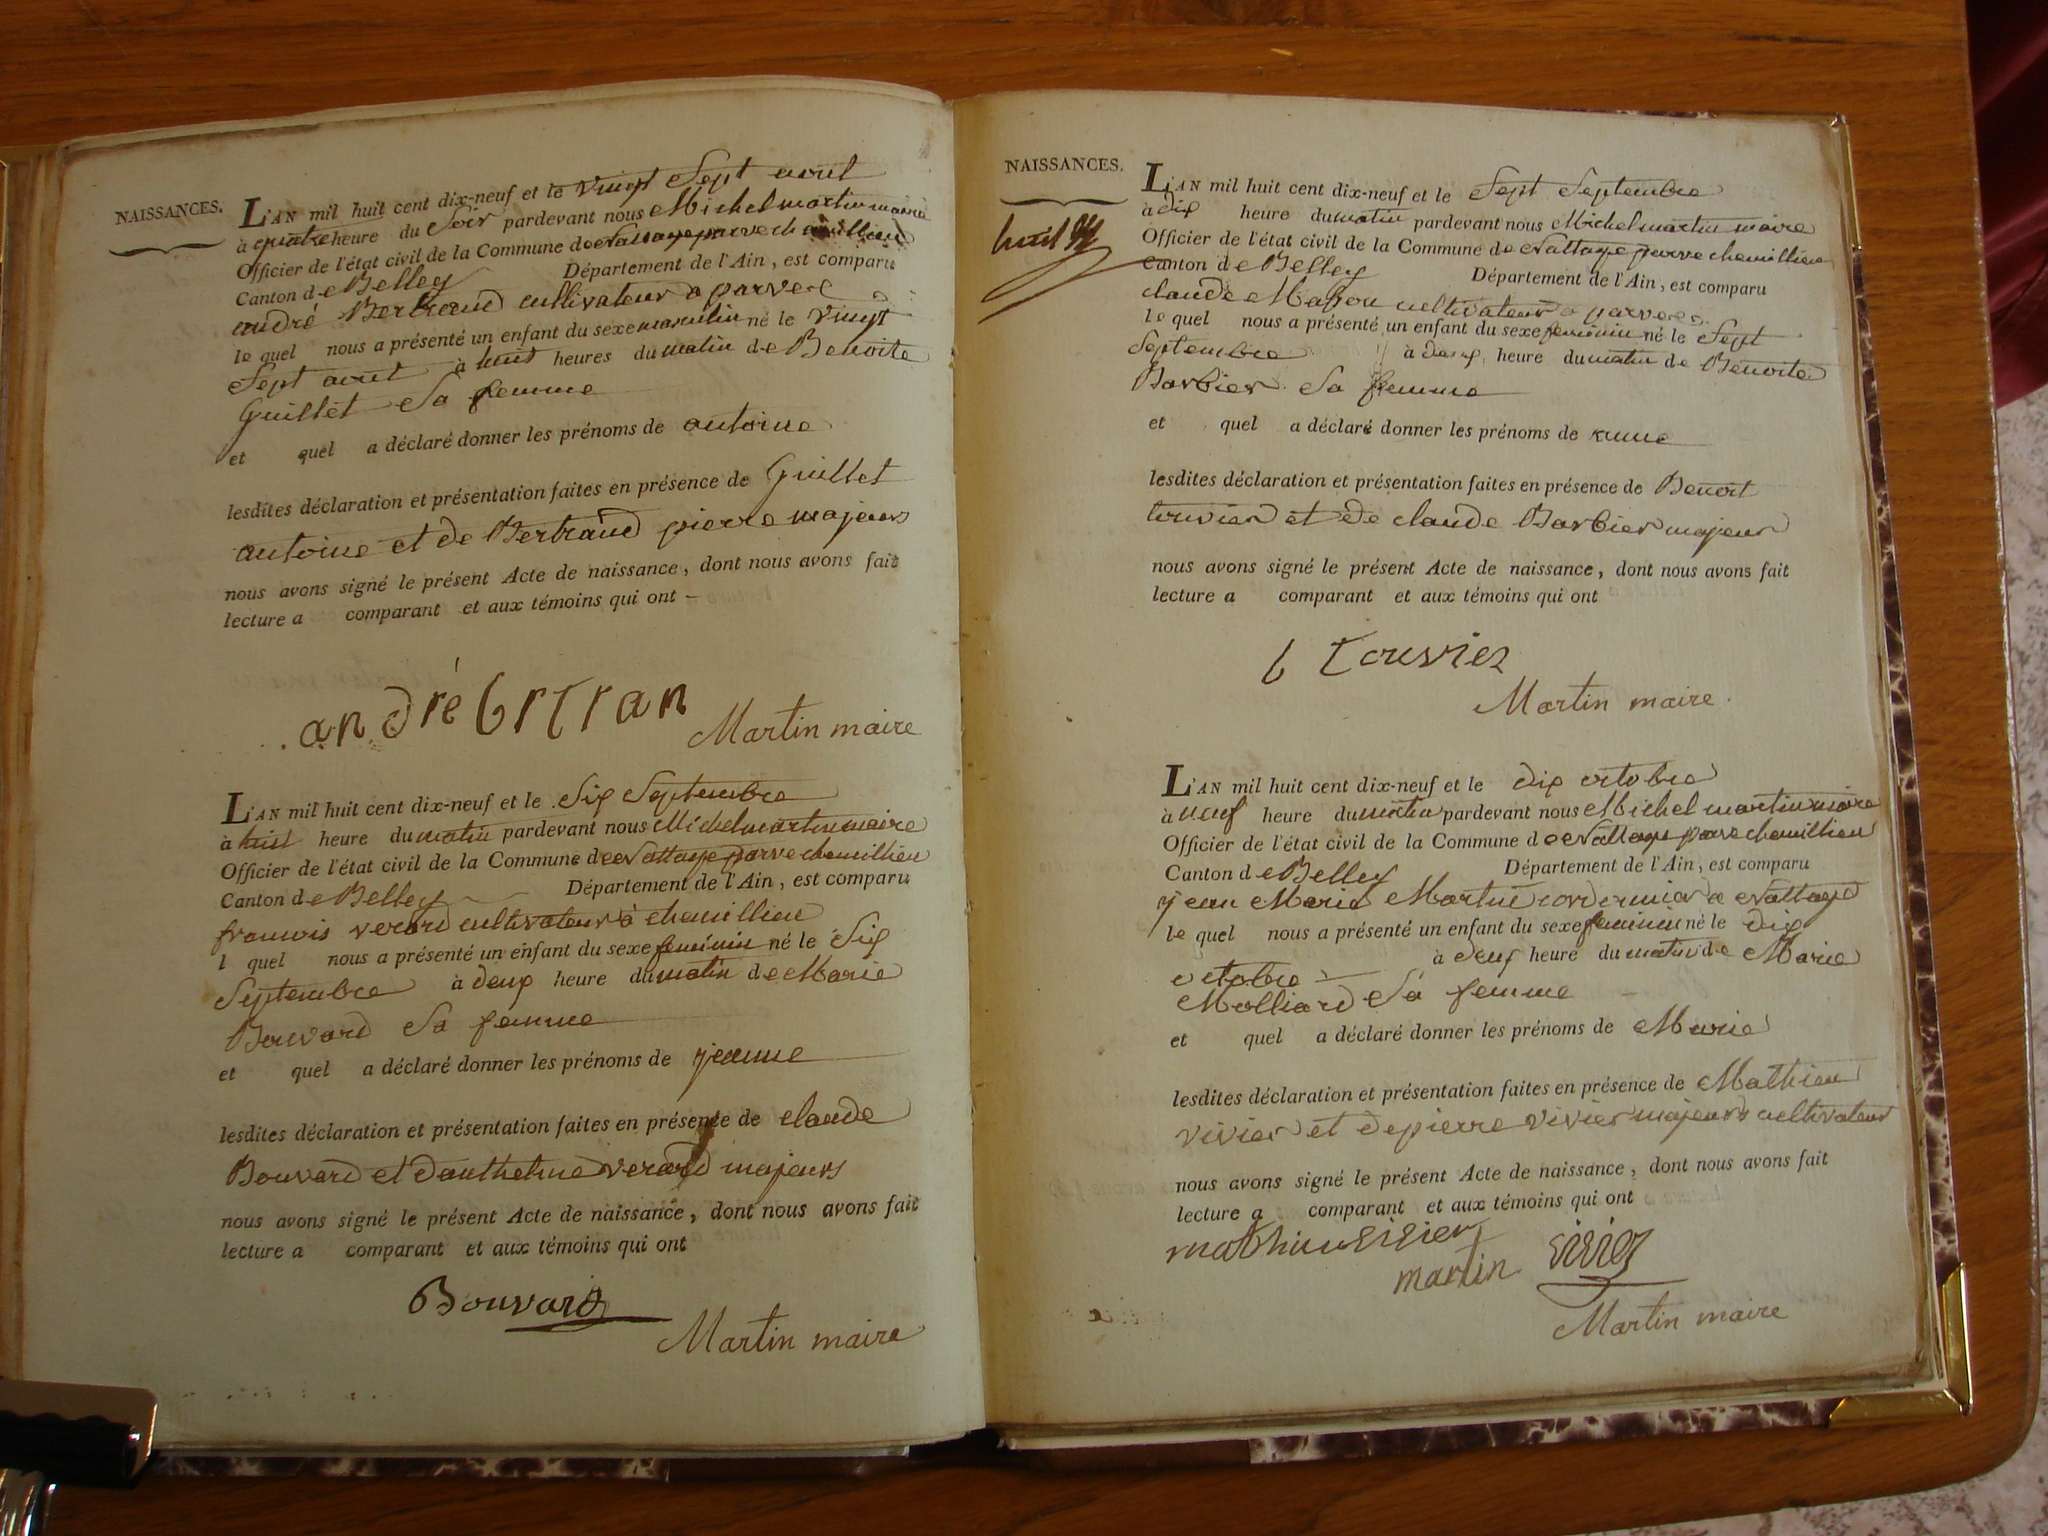 NAISSANCES.
L'AN mil huit cent dix-neuf et le vingt Sept aout
à quatre heure du Soir pardevant nous Michel martin maire
Officier de l'état civil de la Commune de Nattage parve chemillieu
Canton de Belley Département de l'Ain, est comparu
andré Bertrand cultivateur a parve
le quel nous a présenté un enfant du sexe masculin né le vingt
Sept aout à huit heures du matin de Benoite
Guillet Sa femme
et quel a déclaré donner les prénoms de antoine
lesdites déclaration et présentation faites en présence de Guillet
antoine et de Bertrand pierre majeurs
nous avons signé le présent Acte de naissance, dont nous avons fait
lecture a comparant et aux témoins qui ont
andré brtran
Martin maire
L'AN mil huit cent dix-neuf et le Six Septembre
à huit heure du matin pardevant nous Michel martin maire
Officier de l'état civil de la Commune de Nattage parve chemillieu
Canton de Belley Département de l'Ain, est comparu
francois verard cultivateur à chemillieu
l quel nous a présenté un enfant du sexe feminin né le Six
Septembre à deux heure du matin de Marie
Bouvard Sa femme
et quel a déclaré donner les prénoms de jeanne
lesdites déclaration et présentation faites en présence de claude
Bouvard et danthelme verard majeurs
nous avons signé le présent Acte de naissance, dont nous avons fait
lecture a comparant et aux témoins qui ont
Bouvard
Martin maire
NAISSANCES.
huit
L'AN mil huit cent dix-neuf et le Sept Septembre
à dix heure du matin pardevant nous Michel martin maire
Officier de l'état civil de la Commune de Nattage parve chemillieu
Canton de Belley Département de l'Ain, est comparu
claude cultivateur a parves
le quel nous a présenté un enfant du sexe feminin né le Sept
Septembre à deux heure du matin de Benoite
Barbier Sa femme
et quel a déclaré donner les prénoms de anne
lesdites déclaration et présentation faites en présence de Benoit
touvier et de claude Barbier majeur
nous avons signé le présent Acte de naissance, dont nous avons fait
lecture a comparant et aux témoins qui ont
b Touvier
Martin maire.
L'AN mil huit cent dix-neuf et le dix octobre
à neuf heure du matin pardevant nous Michel martin maire
Officier de l'état civil de la Commune de Nattage parve chemillieu
Canton de Belley Département de l'Ain, est comparu
jean Marie Martin cordonnier a Nattage
le quel nous a présenté un enfant du sexe feminin né le dix
octobre à deux heure du matin de Marie
Molliard Sa femme
et quel a déclaré donner les prénoms de Marie
lesdites déclaration et présentation faites en présence de Mathieu
vivier et de pierre vivier majeurs cultivateur
nous avons signé le présent Acte de naissance, dont nous avons fait
lecture a comparant et aux témoins qui ont
mathiu vivier
martin vivier
Martin maire